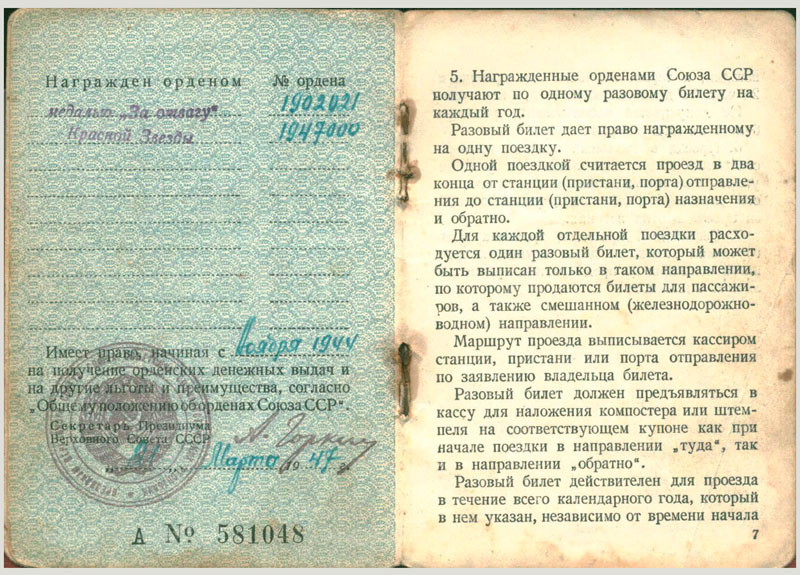 Награжден орденом № ордена
медалью „За отвагу“ 1902021
Красной Звезды 1947000
Имеет право, начиная с ноября 1944
на получение орденских денежных выдач и
на другие льготы и преимущества, согласно
„Общему положению об орденах Союза ССР“.
Секретарь Президиума
Верховного Совета СССР А. Горкин
21 Марта 1947 г.
А № 581048
5. Награжденные орденами Союза ССР
получают по одному разовому билету на
каждый год.
Разовый билет дает право награжденному
на одну поездку.
Одной поездкой считается проезд в два
конца от станции (пристани, порта) отправле-
ния до станции (пристани, порта) назначения
и обратно.
Для каждой отдельной поездки расхо-
дуется один разовый билет, который может
быть выписан только в таком направлении,
по которому продаются билеты для пассажи-
ров, а также смешанном (железнодорожно-
водном) направлении.
Маршрут проезда выписывается кассиром
станции, пристани или порта отправления
по заявлению владельца билета.
Разовый билет должен предъявляться в
кассу для наложения компостера или штем-
пеля на соответствующем купоне как при
начале поездки в направлении „туда“, так
и в направлении „обратно“.
Разовый билет действителен для проезда
в течение всего календарного года, который
в нем указан, независимо от времени начала
7